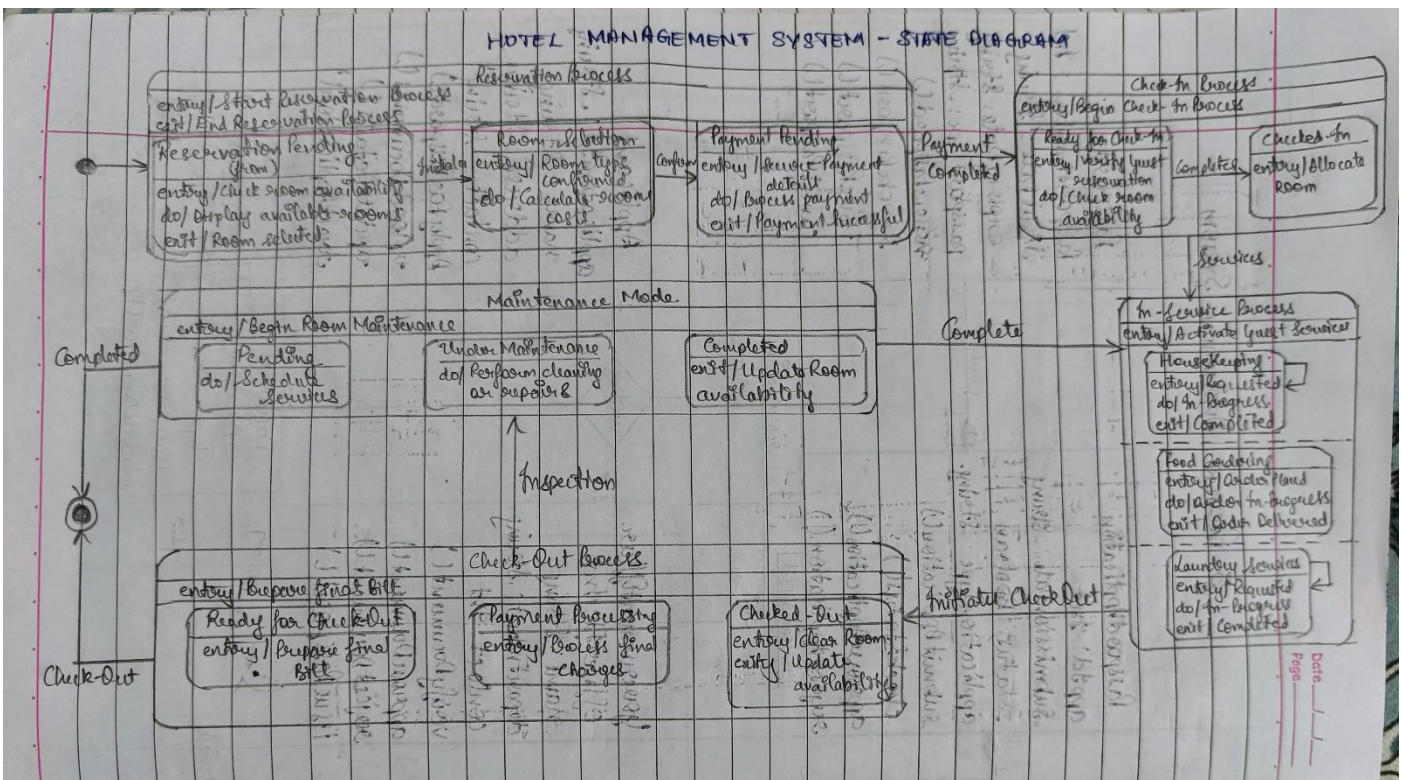 HOTEL MANAGEMENT SYSTEM - STATE DIAGRAM
Reservation Process
entry/Start Reservation Process
exit/End Reservation Process
Reservation Pending
entry/Check room availability
do/Display available rooms
exit/Room selected
Room Selection
entry/Room type
confirmed
do/Calculate room
costs
Confirm
Payment Pending
entry/Secure Payment
details
do/Process payment
exit/Payment Successful
Payment
Completed
Check-In Process
entry/Begin Check-In Process
Ready for Check-In
entry/Verify guest
reservation
do/Check room
availability
Completed
Checked-In
entry/Allocate
Room
Services
Maintenance Mode
entry/Begin Room Maintenance
Pending
do/Schedule
Services
Under Maintenance
do/Perform cleaning
or repairs
Completed
exit/Update Room
availability
Complete
Completed
In-Service Process
entry/Activate Guest Services
HouseKeeping
entry/Requested
do/In-Progress
exit/Completed
Food Ordering
entry/Order Placed
do/Order In-Progress
exit/Order Delivered
Laundry Services
entry/Requested
do/In-Progress
exit/Completed
Inspection
Check-Out Process
entry/Prepare final Bill
Ready for Check-Out
entry/Prepare final
Bill
Payment Processing
entry/Process final
charges
Checked-Out
entry/Clear Room
exit/Update
availability
Initiate CheckOut
Check-Out
Date
Page